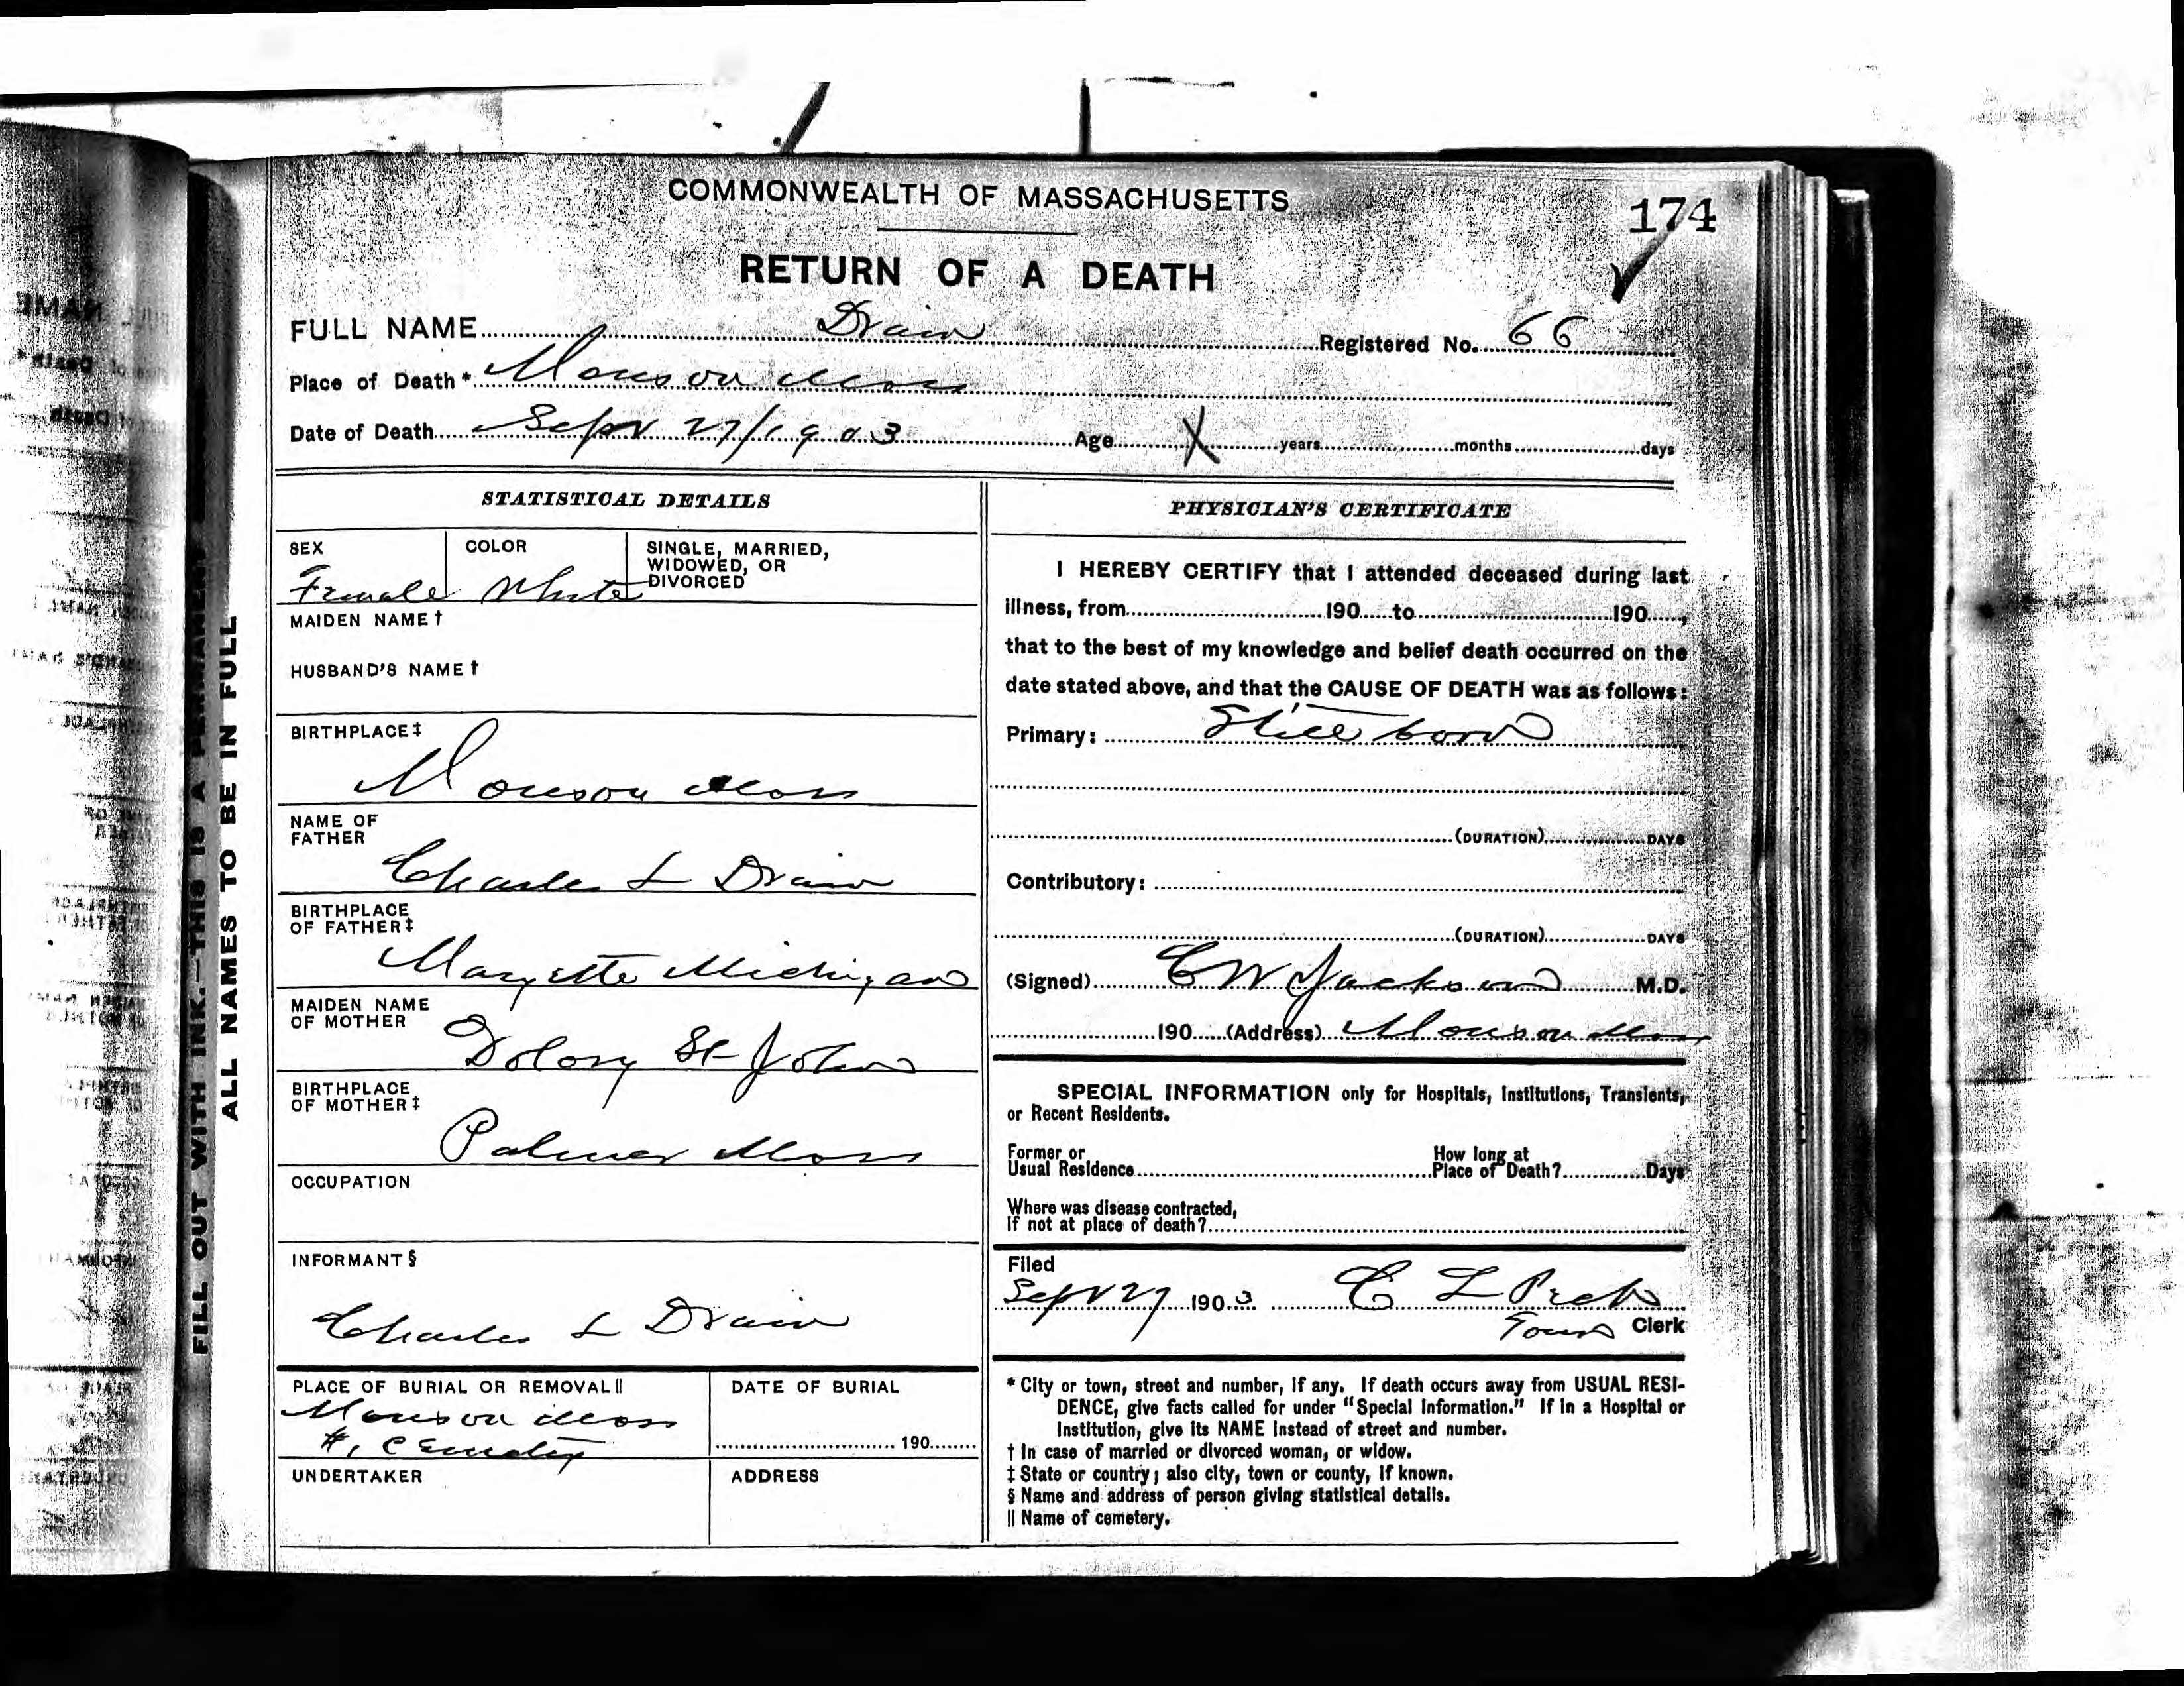 COMMONWEALTH OF MASSACHUSETTS
174
RETURN OF A DEATH
FULL NAME Drain Registered No. 66
Place of Death* Monson Mass
Date of Death Sept 27/1903 Age X years months days
STATISTICAL DETAILS
SEX COLOR SINGLE, MARRIED, WIDOWED, OR DIVORCED
Female White
MAIDEN NAME †
HUSBAND'S NAME †
BIRTHPLACE ‡
Monson Mass
NAME OF FATHER
Charles L Drain
BIRTHPLACE OF FATHER ‡
Marzette Michigan
MAIDEN NAME OF MOTHER
Dolory St John
BIRTHPLACE OF MOTHER ‡
Palmer Mass
OCCUPATION
INFORMANT §
Charles L Drain
PLACE OF BURIAL OR REMOVAL ||
Monson Mass
#1 Cemetery
DATE OF BURIAL
190
UNDERTAKER
ADDRESS
PHYSICIAN'S CERTIFICATE
I HEREBY CERTIFY that I attended deceased during last
illness, from 190 to 190 ,
that to the best of my knowledge and belief death occurred on the
date stated above, and that the CAUSE OF DEATH was as follows:
Primary: Still born
(DURATION) DAYS
Contributory:
(DURATION) DAYS
(Signed) C W Jackson M.D.
190 (Address) Monson Mass
SPECIAL INFORMATION only for Hospitals, Institutions, Transients,
or Recent Residents.
Former or Usual Residence How long at Place of Death? Days
Where was disease contracted,
If not at place of death?
Filed
Sept 27 1903 C L Peck
Town Clerk
* City or town, street and number, if any. If death occurs away from USUAL RESI-
DENCE, give facts called for under "Special Information." If in a Hospital or
Institution, give its NAME instead of street and number.
† In case of married or divorced woman, or widow.
‡ State or country; also city, town or county, if known.
§ Name and address of person giving statistical details.
|| Name of cemetery.
FILL OUT WITH INK.—THIS IS A PERMANENT
ALL NAMES TO BE IN FULL